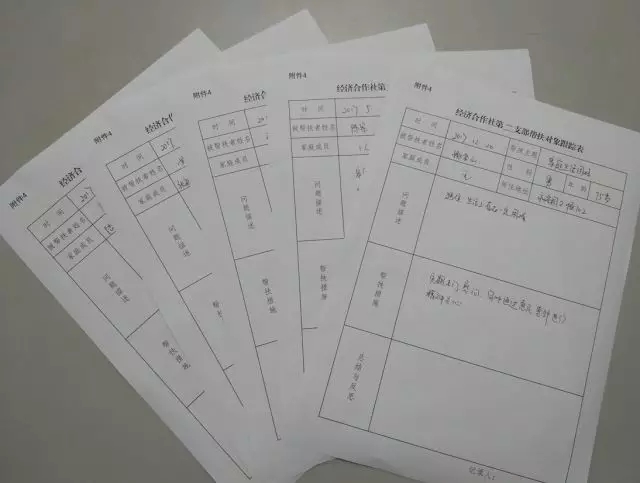 附件4
经济合
时 间
2017
被帮扶者姓名
家庭成员
问题描述
帮扶措施
附件4
经济合作
时 间
2017
被帮扶者姓名
家庭成员
问题描述
帮扶
附件4
经济合作社
时 间
201
被帮扶者姓名
家庭成员
问题描述
帮扶措施
附件4
经济合作社第
时 间
2017 5
被帮扶者姓名
家庭成员
问题描述
帮扶措施
附件4
经济合作社第二支部帮扶对象跟踪表
时 间
2017.12.20
帮扶主题
家庭生活困难
被帮扶者姓名
性 别
男
年 龄
75岁
家庭成员
无
居住地址
问题描述
独居 生活上有一定困难
帮扶措施
定期上门
精神关心
总结与反思
记录人：